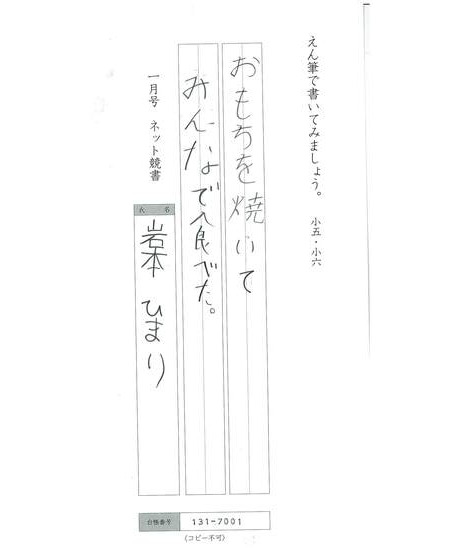 えん筆で書いてみましょう。 小五・小六
おもちを焼いて
みんなで食べた。
一月号 ネット競書
氏名
岩本 ひまり
台帳番号 131-7001
(コピー不可)